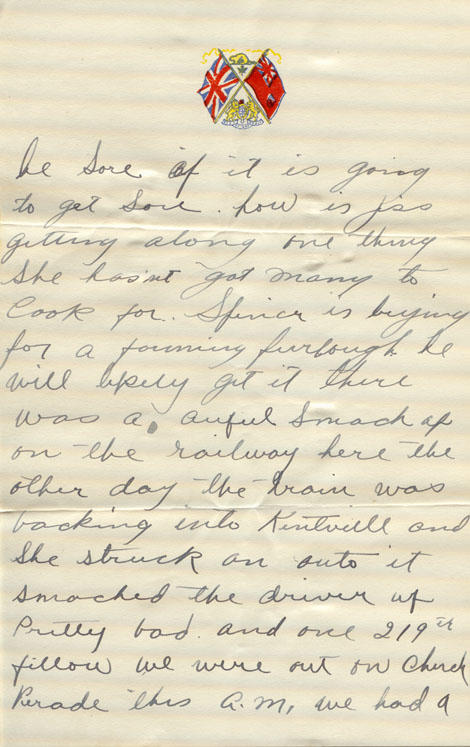 be Sore if it is going
to get Sore. how is jss
getting along one thing
She has'nt got many to
Cook for. Spincer is
for a farming furlough he
will likely get it there
was a auful Smach up
on the railway here the
other day the train was
backing into Kintvill and
She struck an auto it
smached the driver up
Pritty bad. and one 219th
fillow we were out on Church
Perade this A.M, we had a